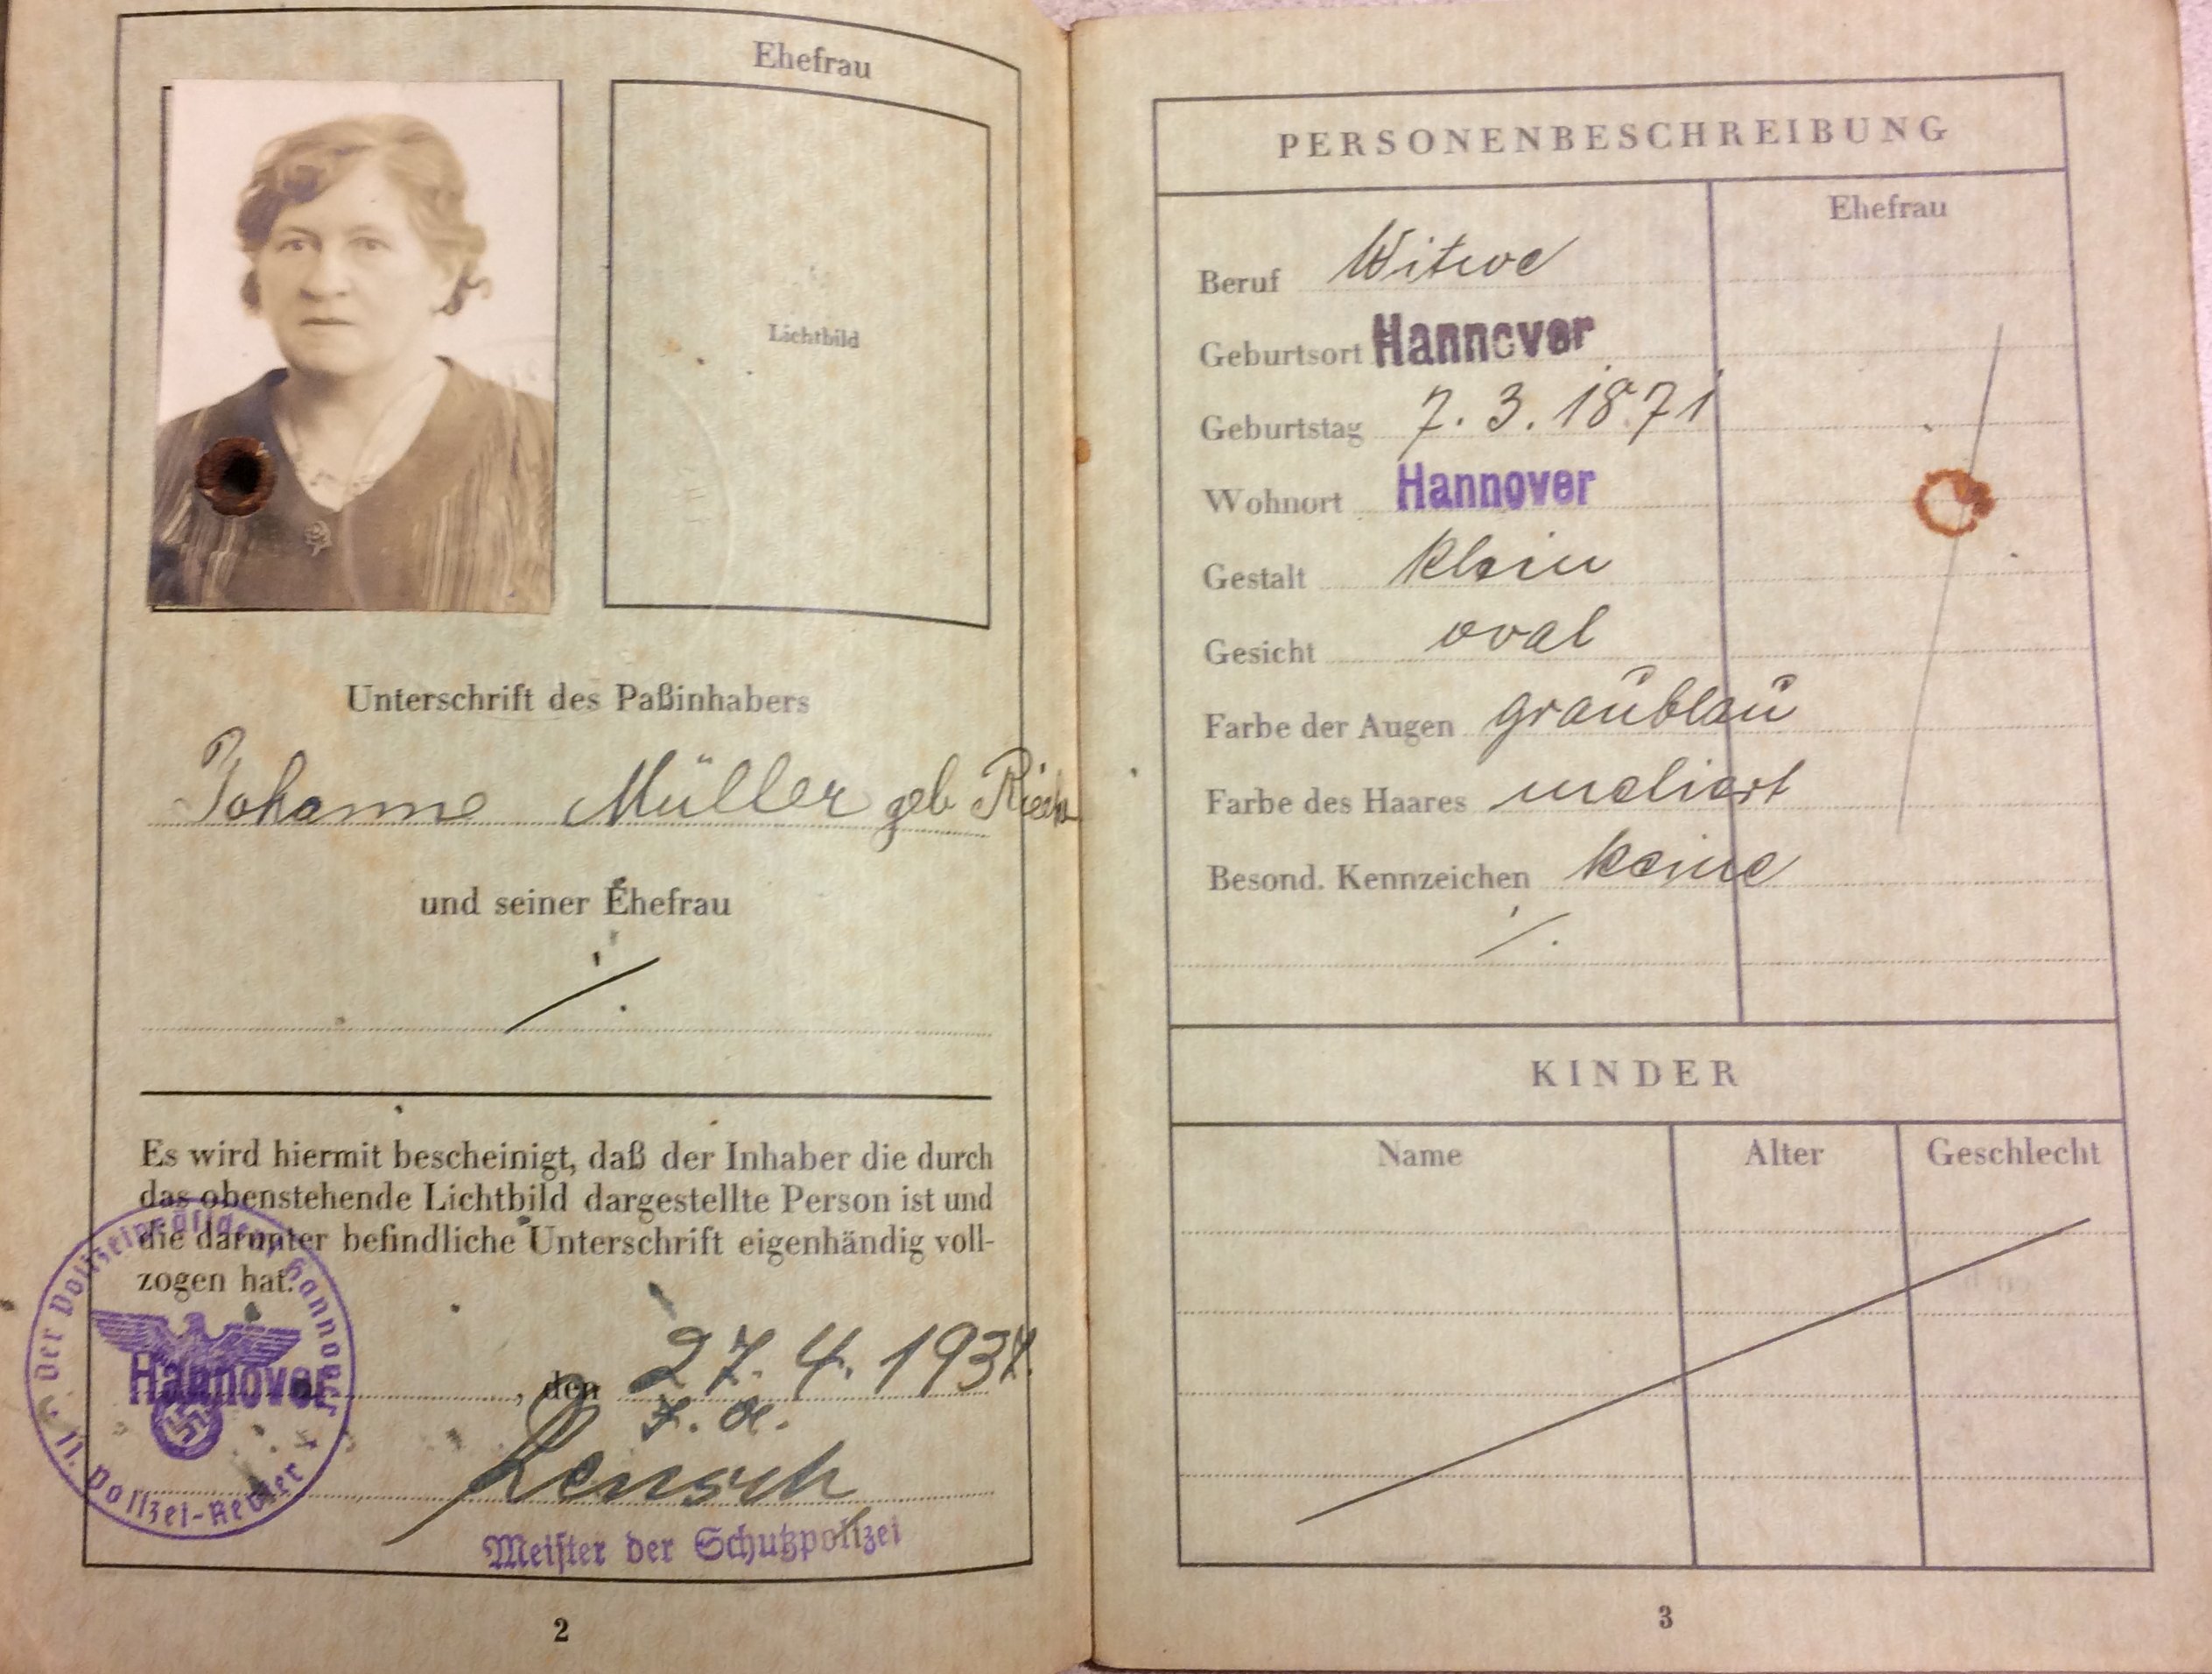 Ehefrau
Lichtbild
Unterschrift des Paßinhabers
Johanne Müller geb
und seiner Ehefrau
Es wird hiermit bescheinigt, daß der Inhaber die durch
das obenstehende Lichtbild dargestellte Person ist und
die darunter befindliche Unterschrift eigenhändig voll-
zogen hat.
Der Polizeipräsident Hannover
11. Polizei-Revier
Hannover, den 27. 4. 1937.
Lensch
Meister der Schutzpolizei
2
PERSONENBESCHREIBUNG
Ehefrau
Beruf Witwe
Geburtsort Hannover
Geburtstag 7. 3. 1871
Wohnort Hannover
Gestalt klein
Gesicht oval
Farbe der Augen graublau
Farbe des Haares meliert
Besond. Kennzeichen keine
KINDER
Name Alter Geschlecht
3